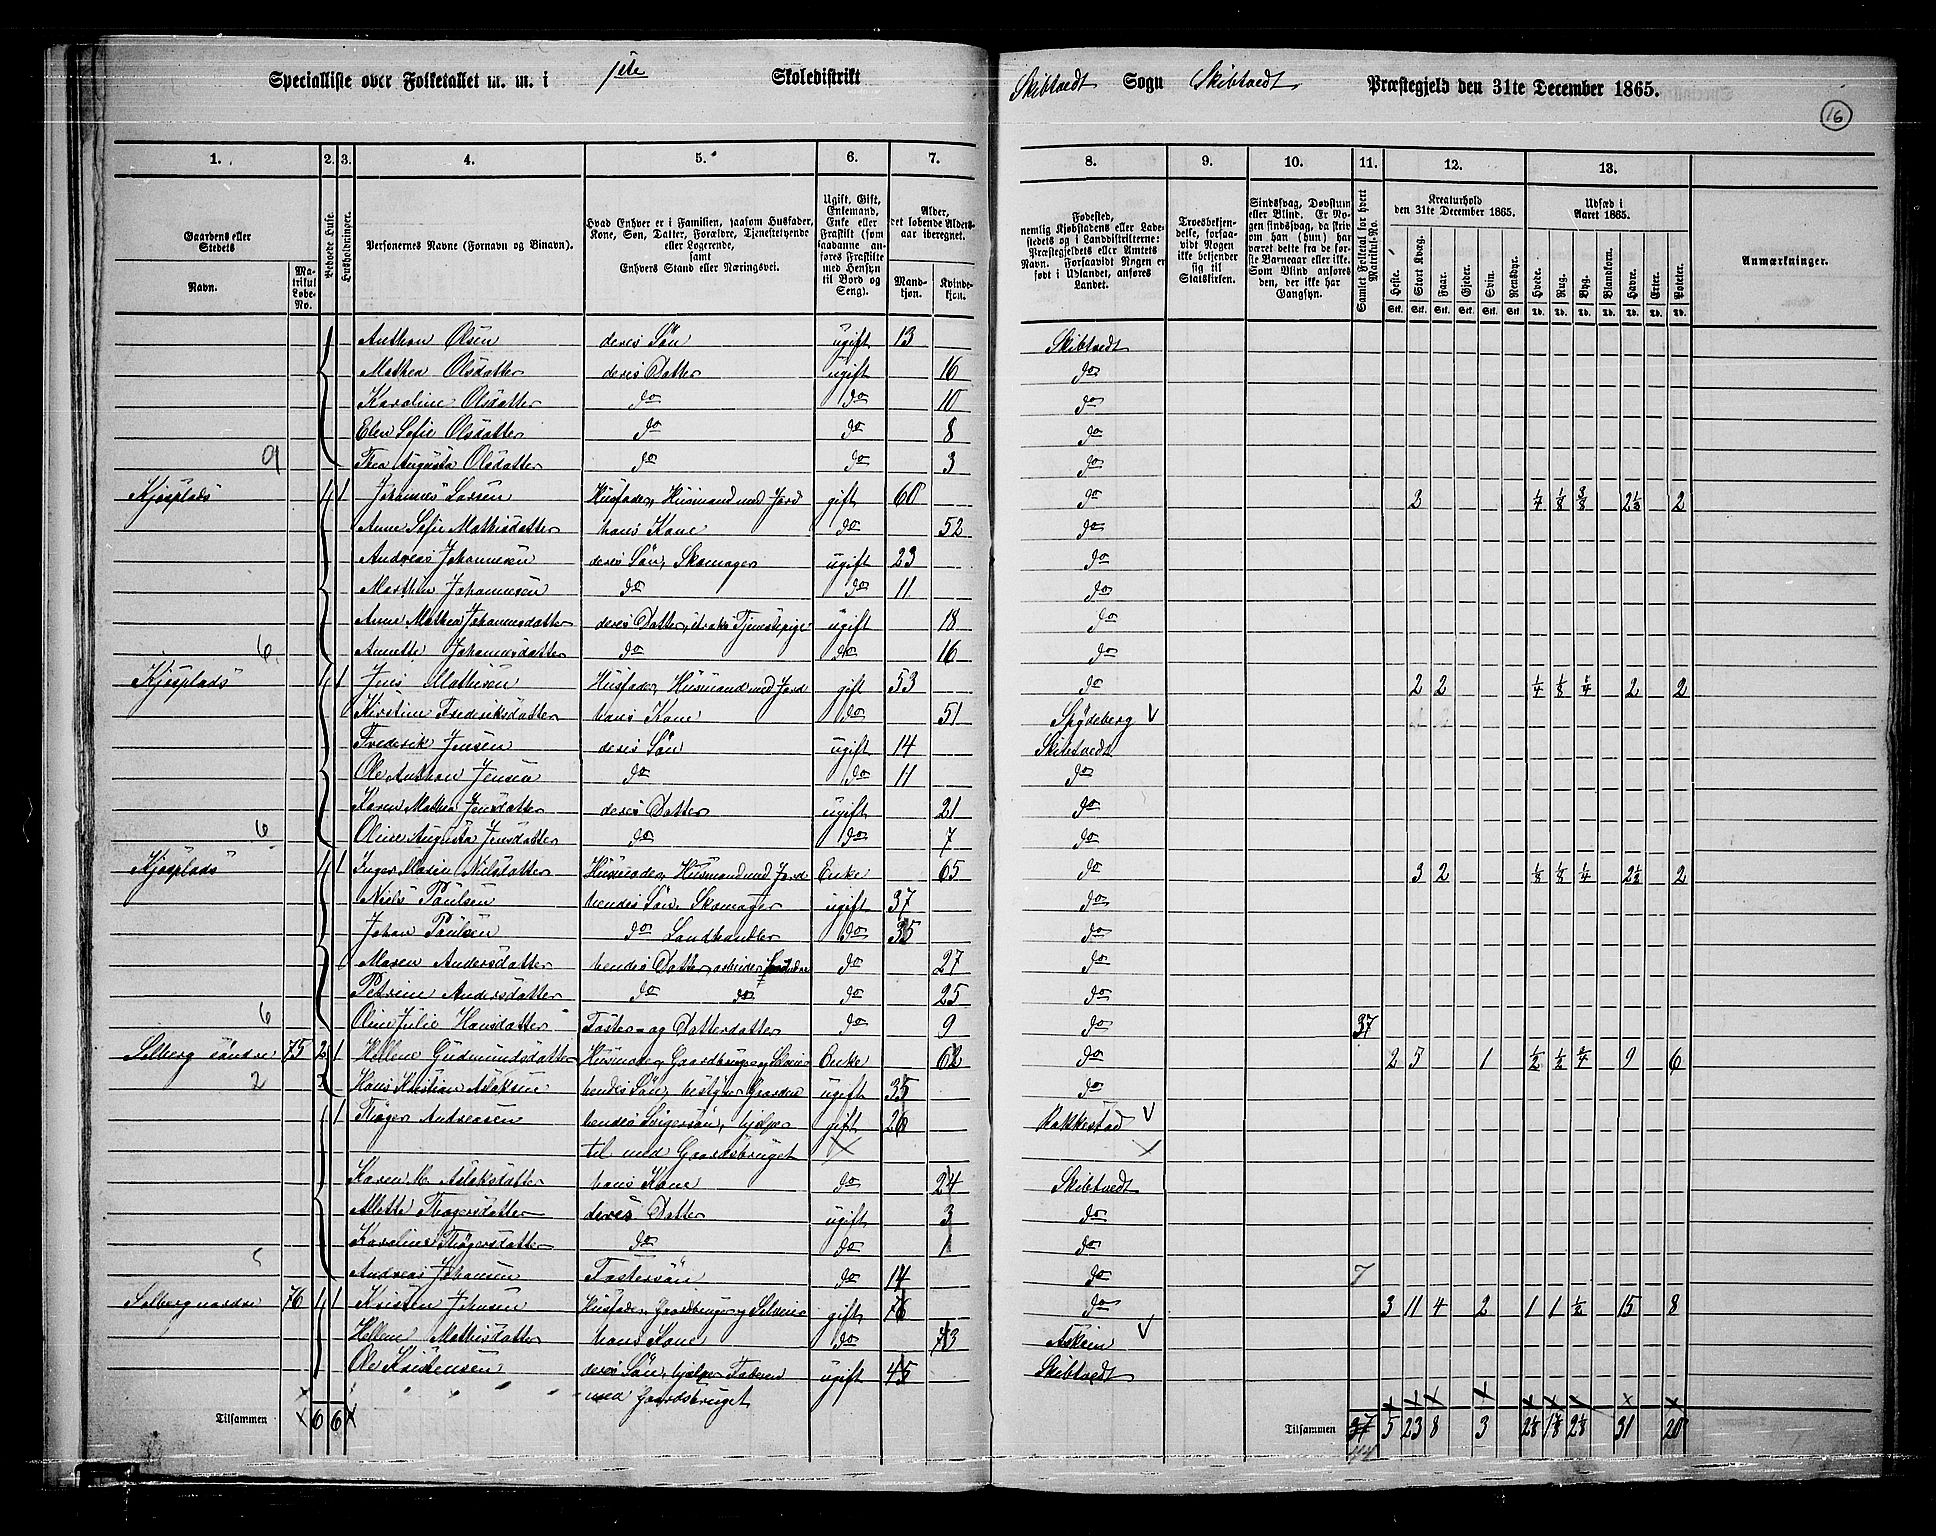 Specialliste over Folketallet m. m. i 1ste Skoledistrikt Skibtvedt Sogn Skibtvedt Præstegjeld den 31te December 1865.
16
1. 2. 3. 4. 5. 6. 7. 8. 9. 10. 11. 12. 13.
Gaardens eller Stedets
Navn.
Matrikul Løbe-No.
Beboede Huse.
Husholdninger.
Personernes Navne (Fornavn og Binavn).
Hvad Enhver er i Familien, saasom Husfader, Kone, Søn, Datter, Forældre, Tjenestetyende eller Logerende, samt Enhvers Stand eller Næringsvei.
Ugift, Gift, Enkemand, Enke eller Fraskilt (som saadanne anføres Fraskilte med Hensyn til Bord og Seng).
Alder, det løbende Alders-aar iberegnet.
Mandkjøn. Kvindekjøn.
Fødested, nemlig Kjøbstadens eller Ladestedets og i Landdistrikterne: Præstegjeldets eller Amtets Navn. Forsaavidt Nogen er født i Udlandet, anføres Landet.
Troesbekjendelse, forsaavidt Nogen ikke bekjender sig til Statskirken.
Sindssvag, Døvstum eller Blind. Er Nogen sindssvag, da skriv om han (hun) har været dette fra de første Barneaar eller ikke. Som Blind anføres den, der ikke har Gangsyn.
Samlet Folketal for hvert Matrikul-No.
Kreaturhold den 31te December 1865.
Heste. Stort Kvæg. Faar. Gjeder. Svin. Rensdyr.
Udsæd i Aaret 1865.
Hvede. Rug. Byg. Blandkorn. Havre. Erter. Poteter.
Anmærkninger.
Anthon Olsen deres Søn ugift 13 Skibtvedt
Mathea Olsdatter deres Datter ugift 16 do
Karoline Olsdatter do do 10 do
Elen Sofie Olsdatter do do 8 do
9 Thea Augusta Olsdatter do do 3 do
Kjosplads 1 1 Johannes Larsen Husfader, Husmand med Jord gift 60 do 2 1/4 1/8 3/8 2 1/2 2
Anne Sofie Mathisdatter hans Kone do 52 do
Andreas Johannesen deres Søn, Skomager ugift 23 do
Marthin Johannesen do do 11 do
Anne Mathea Johannesdatter deres Datter, Tjenestepige ugift 18 do
6 Annette Johannesdatter do do 16 do
Kjosplads 1 1 Jens Mathisen Husfader, Husmand med Jord gift 53 do 2 2 1/4 1/8 1/4 2 2
Kirstine Frederiksdatter hans Kone do 51 Spydeberg V
Frederik Jensen deres Søn ugift 14 Skibtvedt
Ole Anthon Jensen do do 11 do
Karen Mathea Jensdatter deres Datter ugift 21 do
6 Oline Augusta Jensdatter do do 7 do
Kjosplads 1 1 Inger Marie Nilsdatter Husmoder, Husmand med Jord Enke 65 do 3 2 1/8 1/8 1/4 2 1/2 2
Niels Paulsen hendes Søn, Skomager ugift 37 do
Johan Paulsen do Landhandler do 35 do
Maren Andersdatter hendes Datter, arbeider do 27 do
Petrine Andersdatter do do do 25 do
6 Oline Julie Hansdatter Foster- og Datterdatter do 9 do 37
Solberg søndre 75 2 1 Hellene Gudmundsdatter Husmoder, Gaardbruger og Selveier Enke 62 do 2 5 1 1/2 1/2 3/4 9 6
2 Hans Kristian Aslaksen hendes Søn, bestyrer Gaarden ugift 35 do
1 Thøger Andreasen hendes Svigersøn, hjelper gift 26 Rakkestad V
til med Gaardsbruget X X
Karen M. Aslaksdatter hans Kone do 24 Skibtvedt
Alette Thøgersdatter deres Datter ugift 3 do
Karoline Thøgersdatter do do 1 do
5 Andreas Johansen Fostersøn do 14 do 7
Solberg nordre 76 1 1 Kristen Jensen Husfader, Gaardbruger og Selveier gift 76 do 3 11 4 2 1 1 1/2 15 8
Hellene Mathisdatter hans Kone do 73 Askim V
Ole Kristensen deres Søn, hjelper Faderen ugift 45 Skibtvedt
med Gaardsbruget
Tilsammen 6 6 Tilsammen 37 5 23 8 3 2 1/8 1 7/8 2 1/8 31 20
44